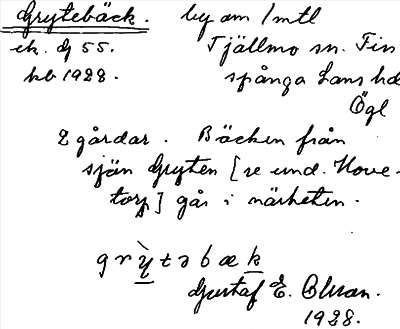 Grytebäck. by om 1 mtl
ek. bl 55. Tjällmo sn. Fin
kb 1928. spånga läns hd
Ögl
2 gårdar. Bäcken från
sjön Gryten [se und. Hove-
torp] går i närheten.
grỳtəbæk
Gustaf E. Olson.
1928.